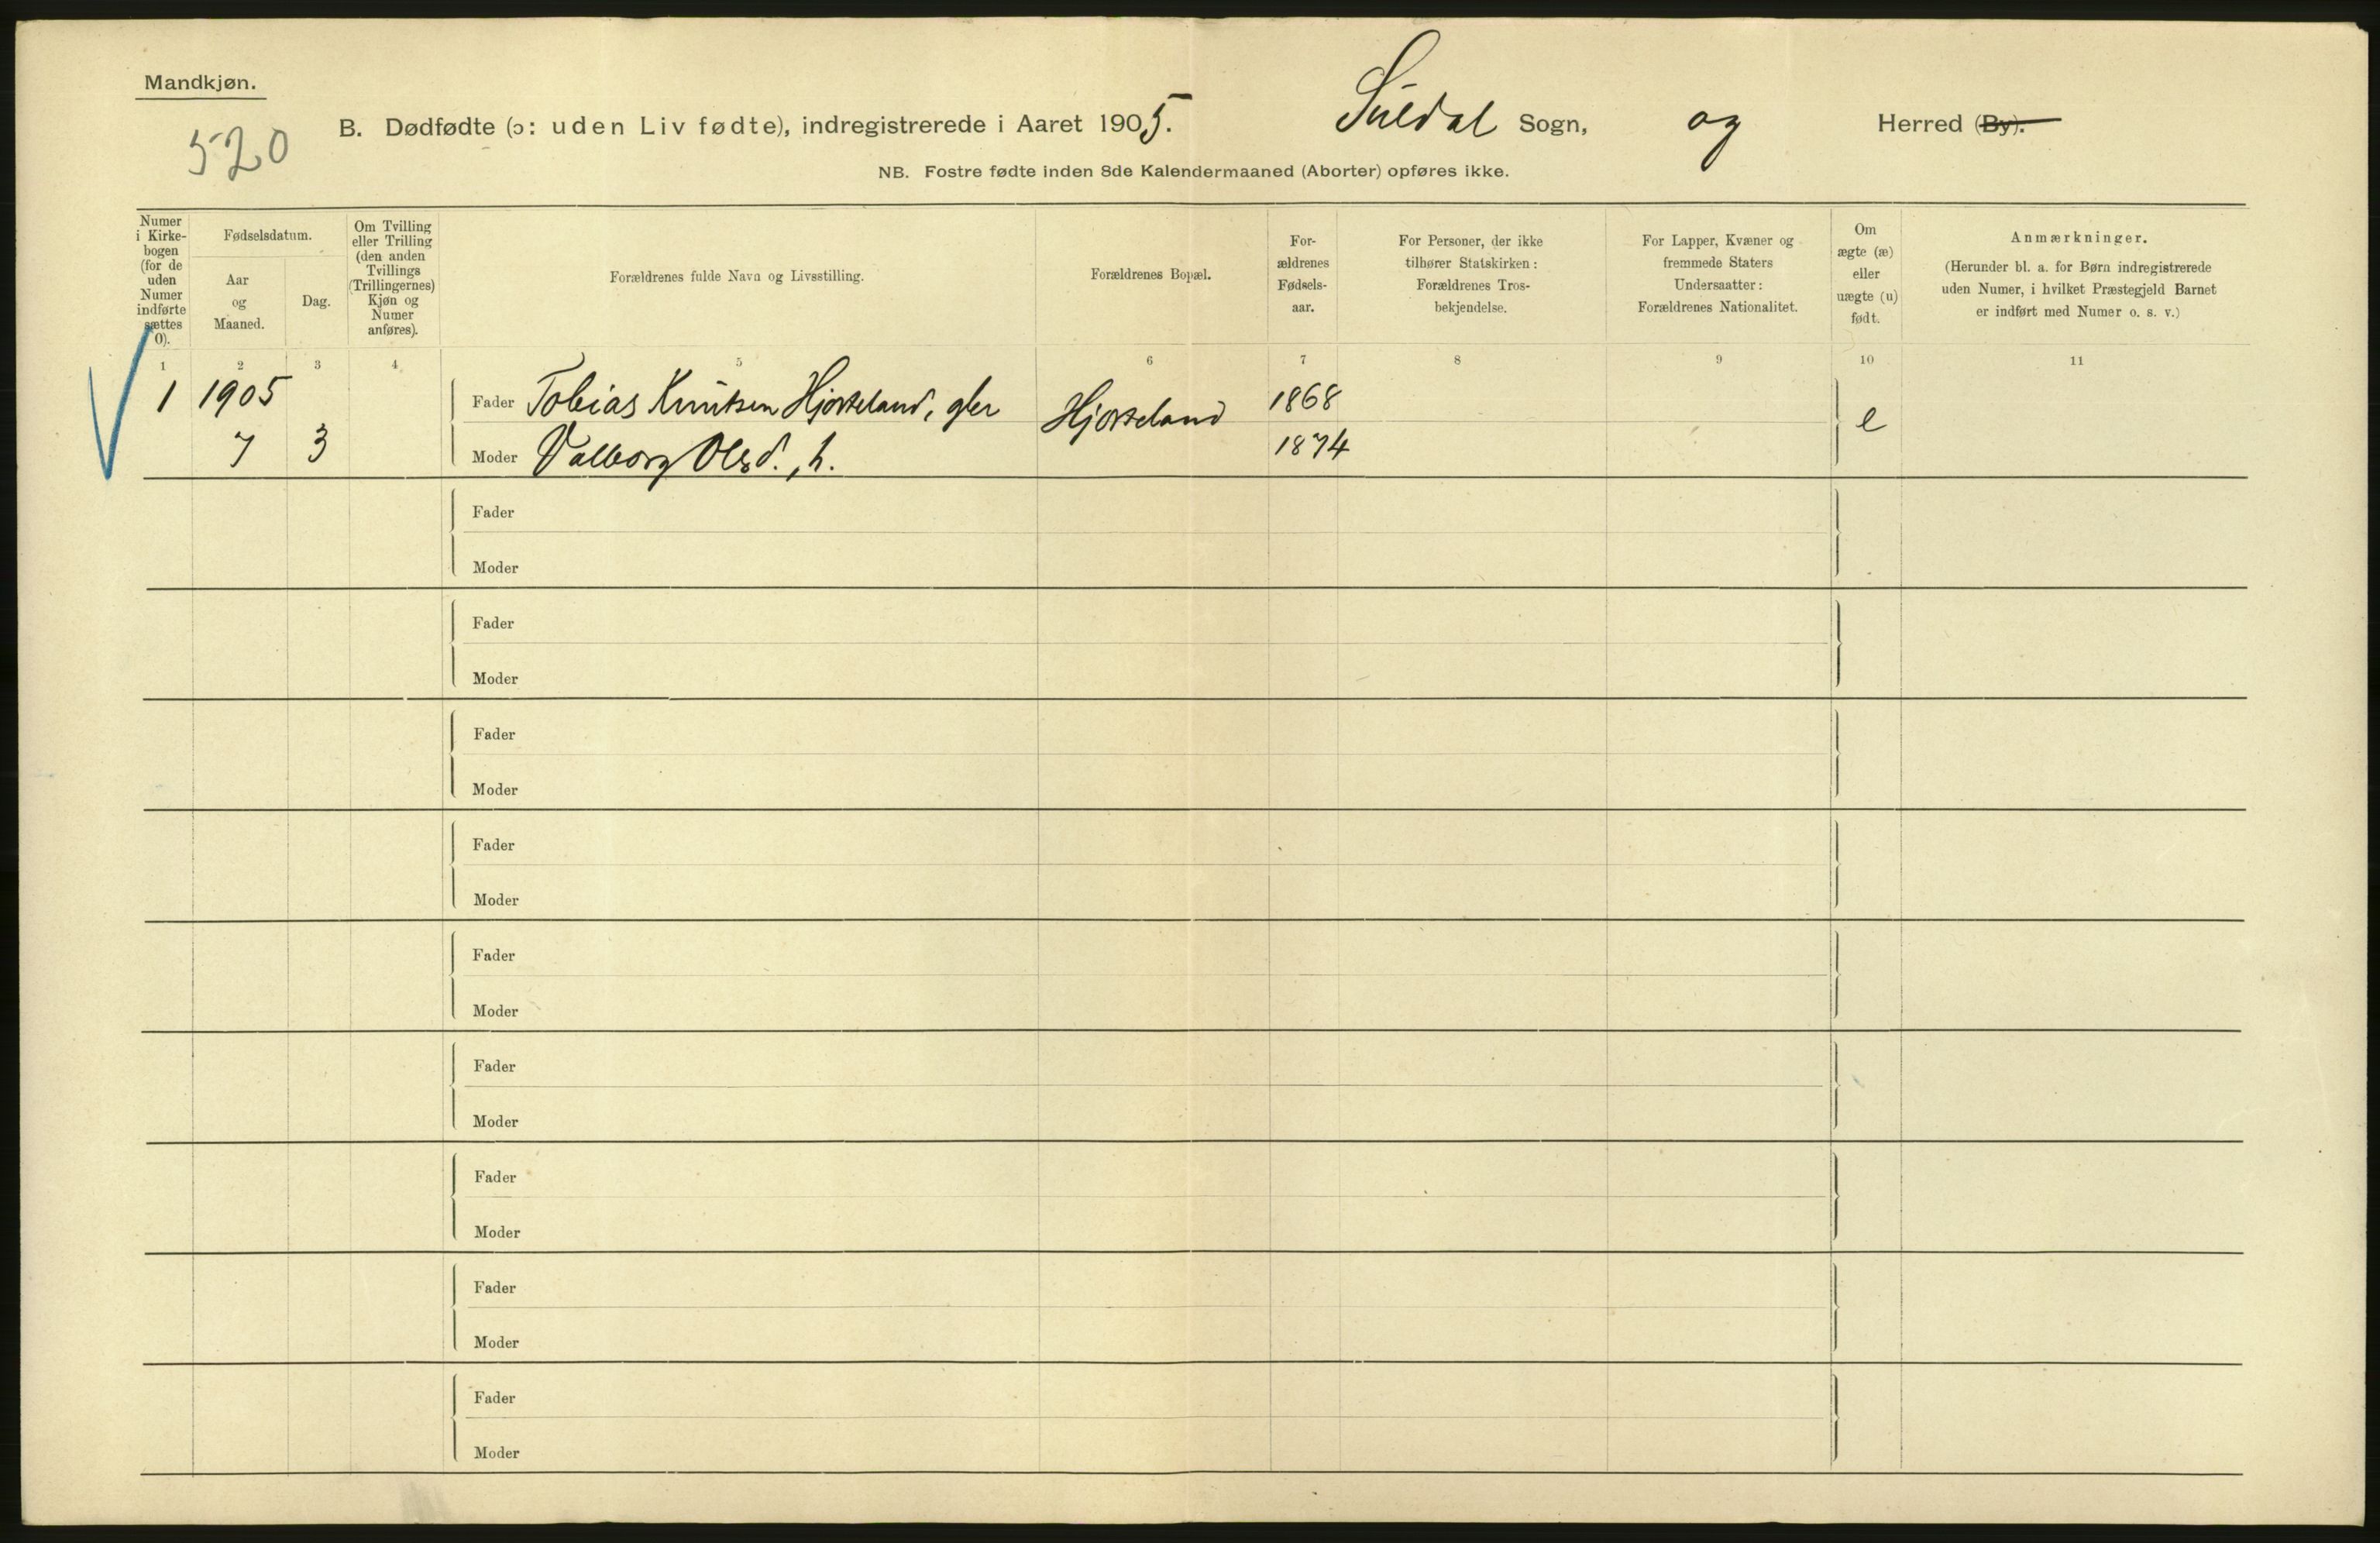 Mandkjøn.
520
B. Dødfødte (ɔ: uden Liv fødte), indregistrerede i Aaret 1905. Suldal Sogn, og Herred (By).
NB. Fostre fødte inden 8de Kalendermaaned (Aborter) opføres ikke.
Numer i Kirke-bogen (for de uden Numer indførte sættes 0).
Fødselsdatum.
Aar og Maaned.
Dag.
Om Tvilling eller Trilling (den anden Tvillings (Trillingernes) Kjøn og Numer anføres).
Forældrenes fulde Navn og Livsstilling.
Forældrenes Bopæl.
For-ældrenes Fødsels-aar.
For Personer, der ikke tilhører Statskirken: Forældrenes Tros-bekjendelse.
For Lapper, Kvæner og fremmede Staters Undersaatter: Forældrenes Nationalitet.
Om ægte (æ) eller uægte (u) født.
Anmærkninger.
(Herunder bl. a. for Børn indregistrerede uden Numer, i hvilket Præstegjeld Barnet er indført med Numer o. s. v.)
1 2 3 4 5 6 7 8 9 10 11
1 1905 Fader Tobias Knutsen Hjorteland, gbr Hjorteland 1868 e
7 3 Moder Valborg Olsd., h. 1874
Fader
Moder
Fader
Moder
Fader
Moder
Fader
Moder
Fader
Moder
Fader
Moder
Fader
Moder
Fader
Moder
Fader
Moder